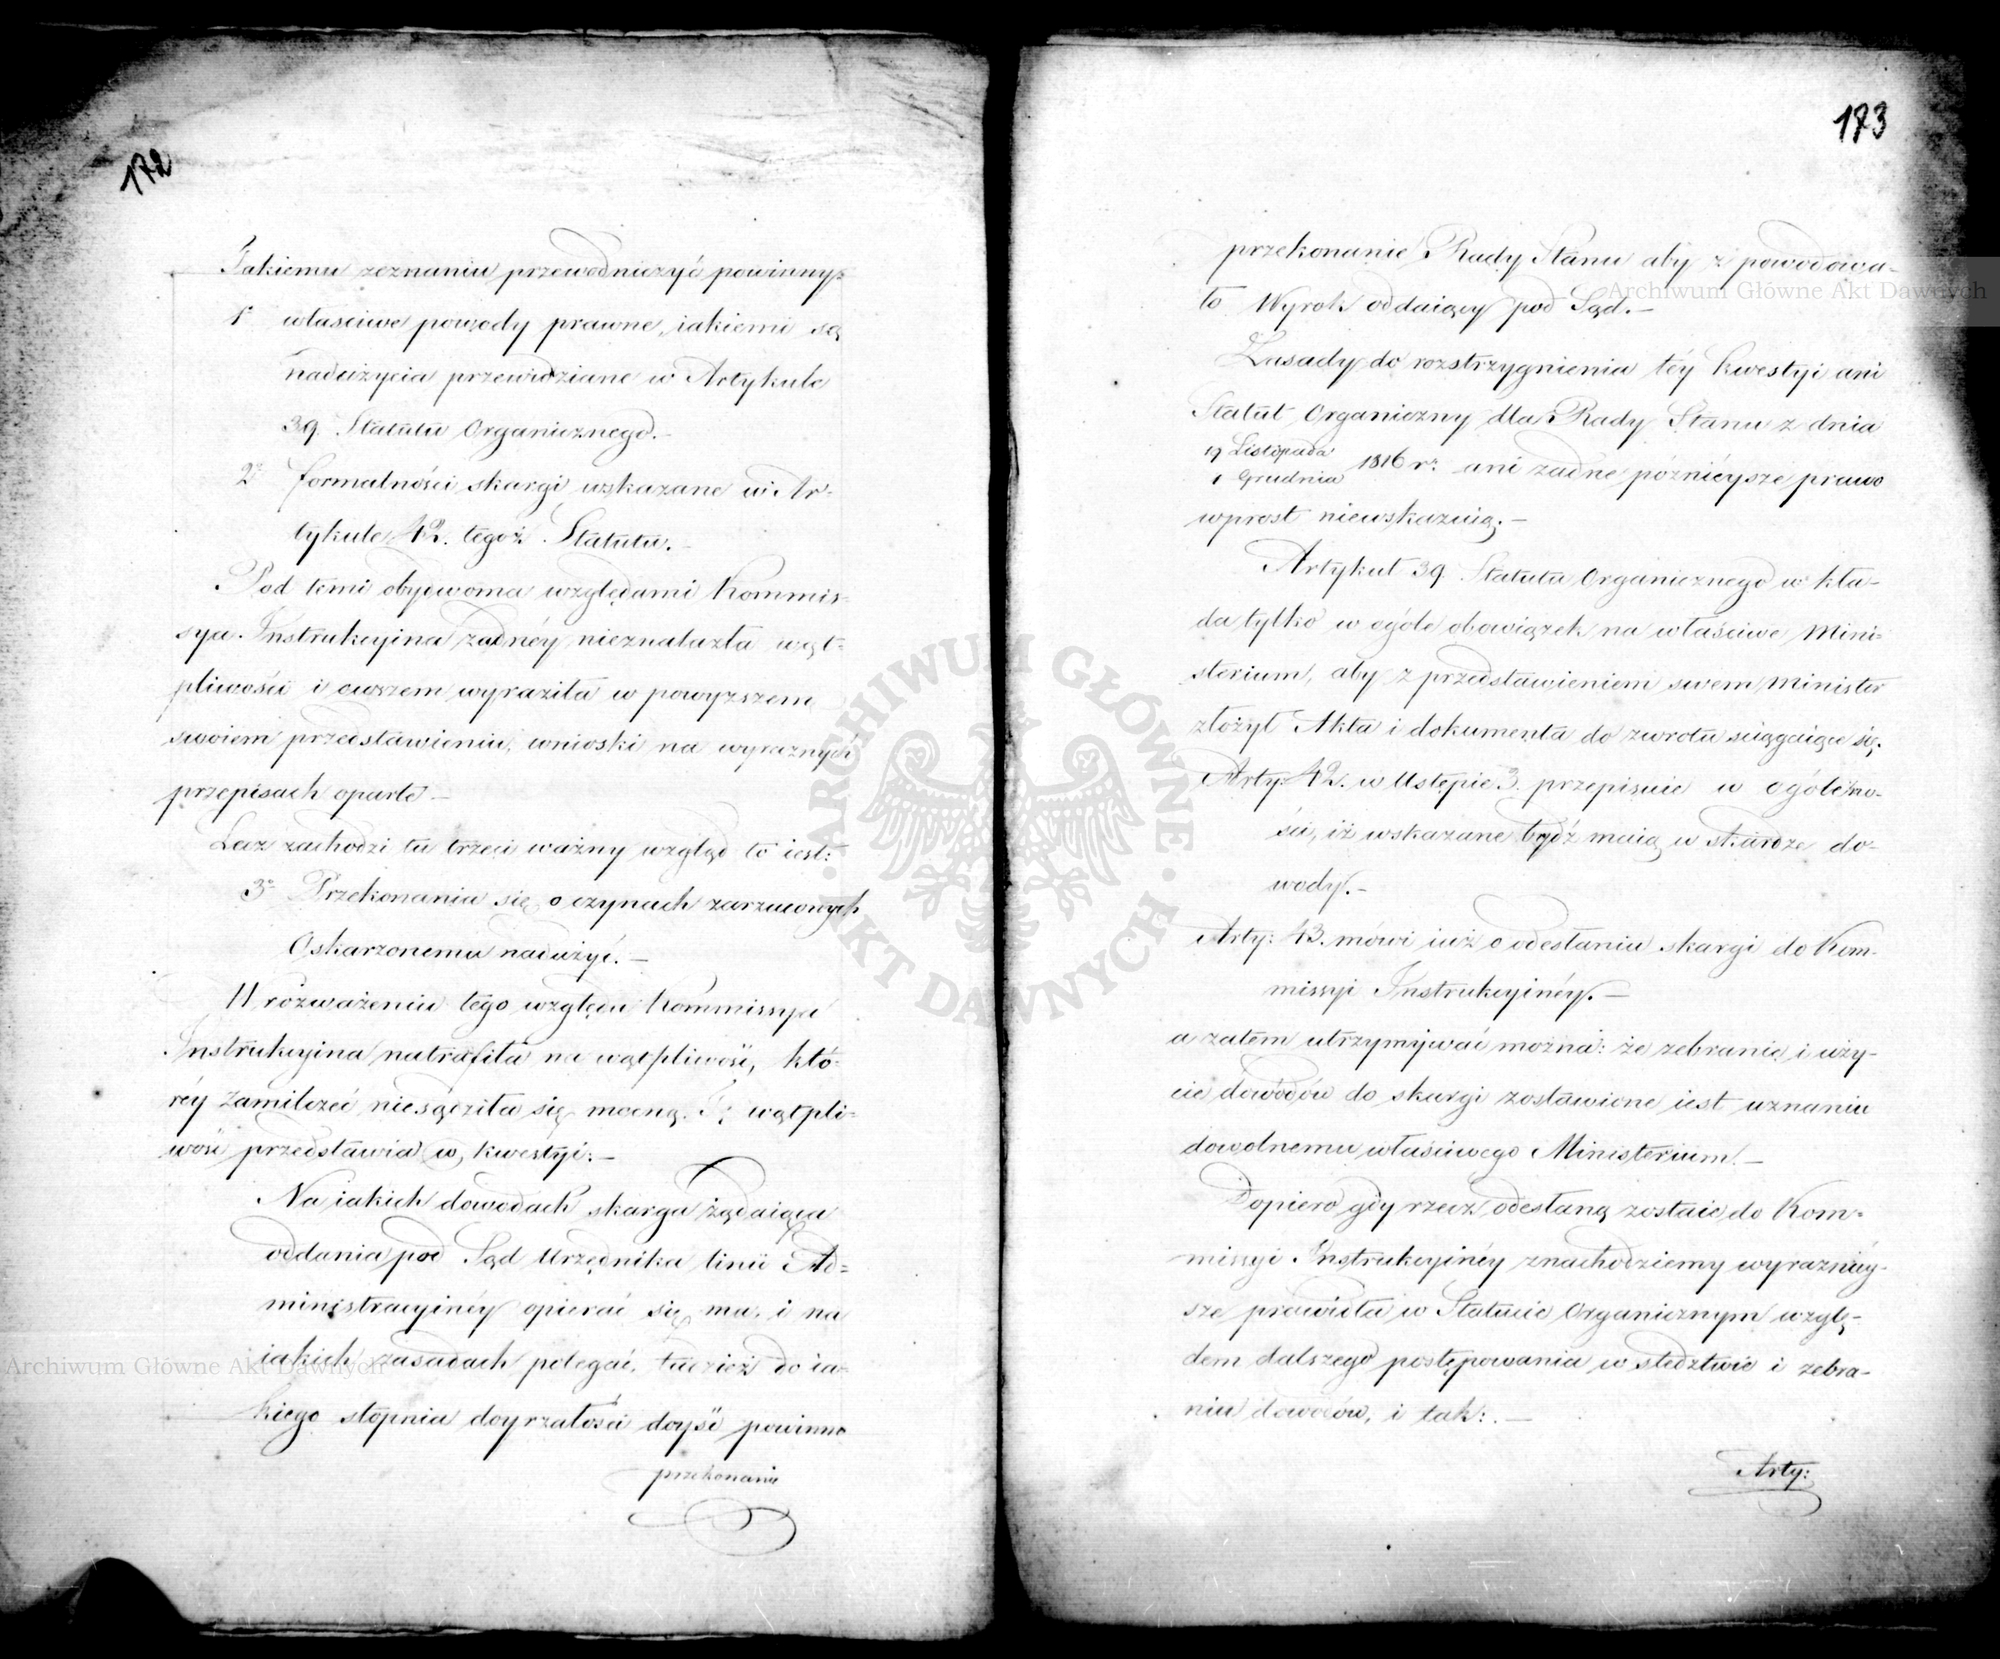 172
Takiemu zeznaniu przewodniczyć powinny:
1° właściwe powody prawne, iakiemi są
nadużycia przewidziane w Artykule
39. Statutu Organicznego.—
2° formalności skargi wskazane w Ar-
tykule 42. tegoż Statutu.—
Pod temi obydwoma względami Kommis-
sya Instrukcyina żadnéy nieznalazła wąt-
pliwości i owszem wyraziła w powyższem
swoiem przedstawieniu, wnioski na wyraznych
przepisach oparte—
Lecz zachodzi tu trzeci ważny wzgląd to iest:
3° Przekonania się o czynach zarzuconych
Oskarżonemu nadużyć.—
W rozważeniu tego względu Kommissya
Instrukcyina natrafiła na wątpliwość, któ-
réy zamilczeć niesądziła się mocną. Tę wątpli-
wość przedstawia w kwestyi:—
Na iakich dowodach skarga żądaiąca
oddania pod Sąd Urzędnika linii Ad-
ministracyinéy opierać się ma, i na
iakich zasadach polegać, tudzież do ia-
kiego stopnia doyrzałości doyść powinno
przekonanie
173
przekonanie Rady Stanu aby z powodowa-
ło Wyrok oddaiący pod Sąd.—
Zasady do rozstrzygnienia téy kwestyi ani
Statut Organiczny dla Rady Stanu z dnia
19 Listopada
1 Grudnia 1816 r. ani żadne póżnieysze prawo
wprost niewskazuią.—
Artykuł 39. Statutu Organicznego w kła-
da tylko w ogóle obowiązek na właściwe Mini-
sterium, aby z przedstawieniem swem Minister
złożył Akta i dokumenta do zwrotu ściągaiące się.
Arty: 42. w Ustępie 3. przepisuie w ogólno-
ści, iż wskazane bydź maią w skardze do-
wody.—
Arty: 43. mówi iuż o odesłaniu skargi do Kom-
missyi Instrukcyinéy.—
a zatem utrzymywać można: że zebranie i uży-
cie dowodów do skargi zostawione iest uznaniu
dowolnemu właściwego Ministerium.—
Dopiero gdy rzecz odesłaną zostaie do Kom-
missyi Instrukcyinéy znachodziemy wyrazniéy-
sze prawidła w Statucie Organicznym wzglę-
dem dalszego postępowania w śledztwie i zebra-
niu dowodów, i tak:.—
Arty:
Archiwum Główne Akt Dawnych
Archiwum Główne Akt Dawnych
ARCHIWUM GŁÓWNE · AKT DAWNYCH ·